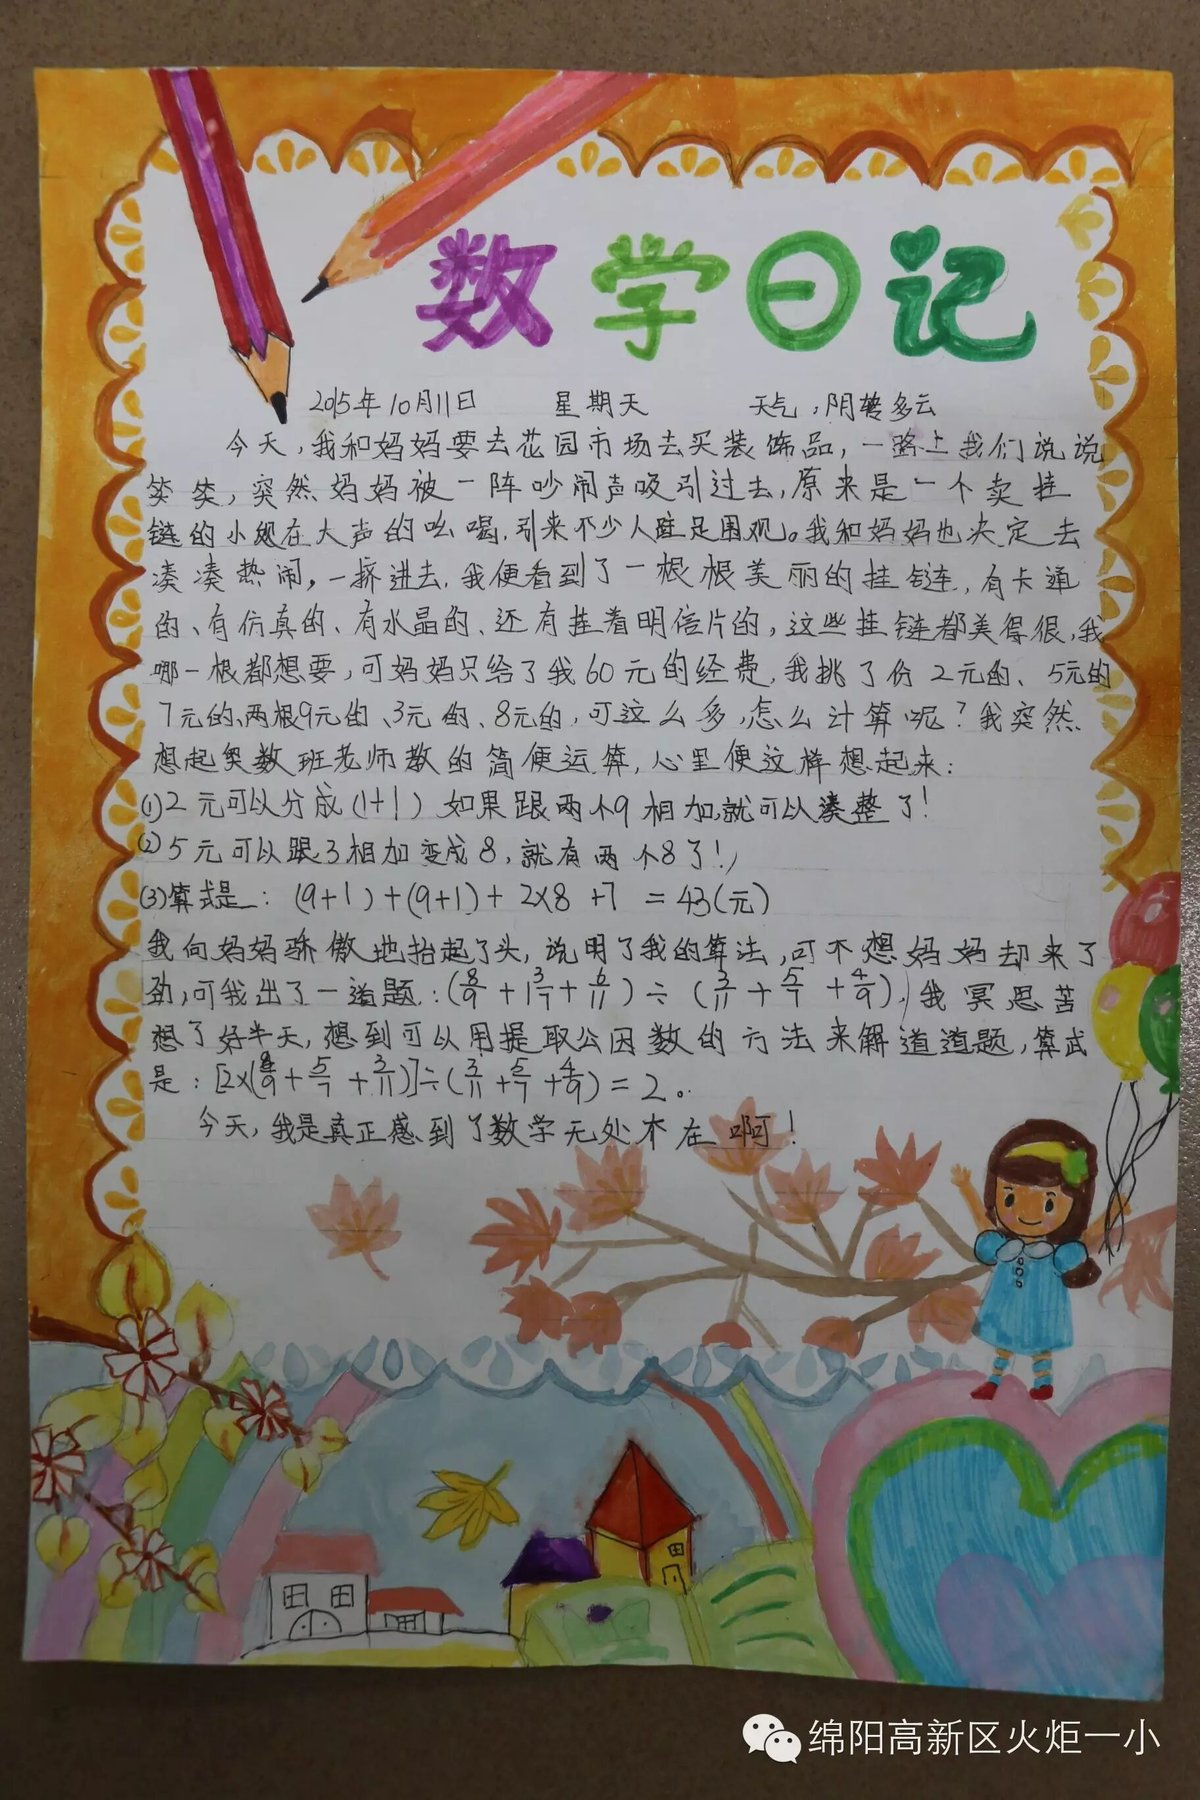 数学日记
2015年10月11日 星期天 天气:阴转多云
今天,我和妈妈要去花园市场去买装饰品,一路上我们说说
笑笑,突然妈妈被一阵吵闹声吸引过去,原来是一个卖挂
链的小贩在大声的吆喝,引来不少人驻足围观。我和妈妈也决定去
凑凑热闹,一挤进去,我便看到了一根根美丽的挂链,有卡通
的、有仿真的、有水晶的、还有挂着明信片的,这些挂链都美得很,我
哪一根都想要,可妈妈只给了我60元的经费,我挑了份2元的、5元的
7元的、两根9元的、3元的、8元的,可这么多,怎么计算呢?我突然
想起奥数班老师教的简便运算,心里便这样想起来:
(1)2元可以分成(1+1)如果跟两个9相加,就可以凑整了!
(2)5元可以跟3相加变成8,就有两个8了!
(3)算式是:(9+1)+(9+1)+2×8+7=43(元)
我向妈妈骄傲地抬起了头,说明了我的算法,可不想妈妈却来了
劲,可我出了一道题:(8/9+1 3/7+6/11)÷(3/11+5/7+4/9),我冥思苦
想了好半天,想到可以用提取公因数的方法来解道道题,算式
是:[2×(4/9+5/7+3/11)]÷(3/11+5/7+4/9)=2。
今天,我是真正感到了数学无处不在啊!
绵阳高新区火炬一小